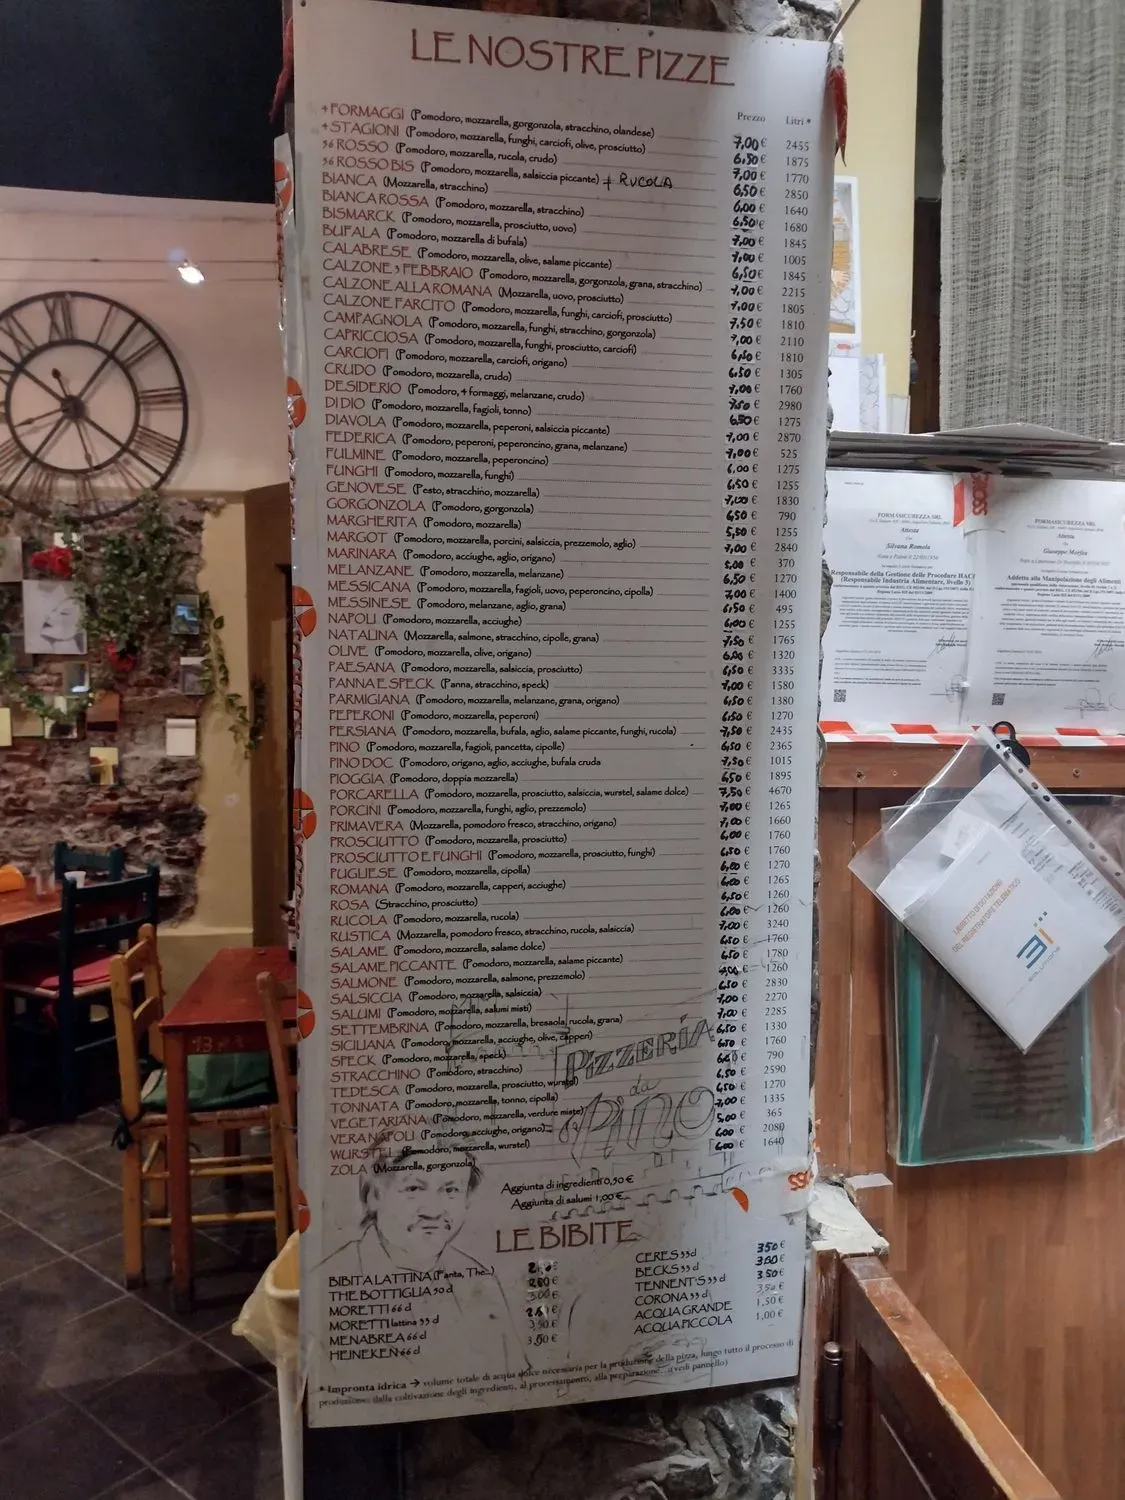 LE NOSTRE PIZZE
Prezzo Litri *
4 FORMAGGI (Pomodoro, mozzarella, gorgonzola, stracchino, olandese) 7,00 € 2455
4 STAGIONI (Pomodoro, mozzarella, funghi, carciofi, olive, prosciutto) 6,50 € 1875
56 ROSSO (Pomodoro, mozzarella, rucola, crudo) 7,00 € 1770
56 ROSSO BIS (Pomodoro, mozzarella, salsiccia piccante) + RUCOLA 6,50 € 2850
BIANCA (Mozzarella, stracchino) 6,00 € 1640
BIANCA ROSSA (Pomodoro, mozzarella, stracchino) 6,50 € 1680
BISMARCK (Pomodoro, mozzarella, prosciutto, uovo) 7,00 € 1845
BUFALA (Pomodoro, mozzarella di bufala) 7,00 € 1005
CALABRESE (Pomodoro, mozzarella, olive, salame piccante) 6,50 € 1845
CALZONE 3 FEBBRAIO (Pomodoro, mozzarella, gorgonzola, grana, stracchino) 7,00 € 2215
CALZONE ALLA ROMANA (Mozzarella, uovo, prosciutto) 7,00 € 1805
CALZONE FARCITO (Pomodoro, mozzarella, funghi, carciofi, prosciutto) 7,50 € 1810
CAMPAGNOLA (Pomodoro, mozzarella, funghi, stracchino, gorgonzola) 7,00 € 2110
CAPRICCIOSA (Pomodoro, mozzarella, funghi, prosciutto, carciofi) 6,50 € 1810
CARCIOFI (Pomodoro, mozzarella, carciofi, origano) 6,50 € 1305
CRUDO (Pomodoro, mozzarella, crudo) 7,00 € 1760
DESIDERIO (Pomodoro, 4 formaggi, melanzane, crudo) 7,50 € 2980
DI DIO (Pomodoro, mozzarella, fagioli, tonno) 6,50 € 1275
DIAVOLA (Pomodoro, mozzarella, peperoni, salsiccia piccante) 7,00 € 2870
FEDERICA (Pomodoro, peperoni, peperoncino, grana, melanzane) 7,00 € 525
FULMINE (Pomodoro, mozzarella, peperoncino) 6,00 € 1275
FUNGHI (Pomodoro, mozzarella, funghi) 6,50 € 1255
GENOVESE (Pesto, stracchino, mozzarella) 7,00 € 1830
GORGONZOLA (Pomodoro, gorgonzola) 6,50 € 790
MARGHERITA (Pomodoro, mozzarella) 5,50 € 1255
MARGOT (Pomodoro, mozzarella, porcini, salsiccia, prezzemolo, aglio) 7,00 € 2840
MARINARA (Pomodoro, acciughe, aglio, origano) 5,00 € 370
MELANZANE (Pomodoro, mozzarella, melanzane) 6,50 € 1270
MESSICANA (Pomodoro, mozzarella, fagioli, uovo, peperoncino, cipolla) 7,00 € 1400
MESSINESE (Pomodoro, melanzane, aglio, grana) 6,50 € 495
NAPOLI (Pomodoro, mozzarella, acciughe) 6,00 € 1255
NATALINA (Mozzarella, salmone, stracchino, cipolle, grana) 7,50 € 1765
OLIVE (Pomodoro, mozzarella, olive, origano) 6,00 € 1320
PAESANA (Pomodoro, mozzarella, salsiccia, prosciutto) 6,50 € 3335
PANNA E SPECK (Panna, stracchino, speck) 7,00 € 1580
PARMIGIANA (Pomodoro, mozzarella, melanzane, grana, origano) 6,50 € 1380
PEPERONI (Pomodoro, mozzarella, peperoni) 6,50 € 1270
PERSIANA (Pomodoro, mozzarella, bufala, aglio, salame piccante, funghi, rucola) 7,50 € 2435
PINO (Pomodoro, mozzarella, fagioli, pancetta, cipolle) 6,50 € 2365
PINO DOC (Pomodoro, origano, aglio, acciughe, bufala cruda 7,50 € 1015
PIOGGIA (Pomodoro, doppia mozzarella) 6,50 € 1895
PORCARELLA (Pomodoro, mozzarella, prosciutto, salsiccia, wurstel, salame dolce) 7,50 € 4670
PORCINI (Pomodoro, mozzarella, funghi, aglio, prezzemolo) 7,00 € 1265
PRIMAVERA (Mozzarella, pomodoro fresco, stracchino, origano) 7,00 € 1660
PROSCIUTTO (Pomodoro, mozzarella, prosciutto) 6,00 € 1760
PROSCIUTTO E FUNGHI (Pomodoro, mozzarella, prosciutto, funghi) 6,50 € 1760
PUGLIESE (Pomodoro, mozzarella, cipolla) 6,00 € 1270
ROMANA (Pomodoro, mozzarella, capperi, acciughe) 6,00 € 1265
ROSA (Stracchino, prosciutto) 6,50 € 1260
RUCOLA (Pomodoro, mozzarella, rucola) 6,00 € 1260
RUSTICA (Mozzarella, pomodoro fresco, stracchino, rucola, salsiccia) 7,00 € 3240
SALAME (Pomodoro, mozzarella, salame dolce) 6,50 € 1760
SALAME PICCANTE (Pomodoro, mozzarella, salame piccante) 6,50 € 1780
SALMONE (Pomodoro, mozzarella, salmone, prezzemolo) € 1260
SALSICCIA (Pomodoro, mozzarella, salsiccia) 6,50 € 2830
SALUMI (Pomodoro, mozzarella, salumi misti) 7,00 € 2270
SETTEMBRINA (Pomodoro, mozzarella, bresaola, rucola, grana) 7,00 € 2285
SICILIANA (Pomodoro, mozzarella, acciughe, olive, capperi) 6,50 € 1330
SPECK (Pomodoro, mozzarella, speck) 6,50 € 1760
STRACCHINO (Pomodoro, stracchino) € 790
TEDESCA (Pomodoro, mozzarella, prosciutto, wurstel) 6,50 € 2590
TONNATA (Pomodoro, mozzarella, tonno, cipolla) 6,50 € 1270
VEGETARIANA (Pomodoro, mozzarella, verdure miste) 7,00 € 1335
VERA NAPOLI (Pomodoro, acciughe, origano) 5,00 € 365
WURSTEL (Pomodoro, mozzarella, wurstel) 6,00 € 2080
ZOLA (Mozzarella, gorgonzola) 6,00 € 1640
PIZZERIA
da
PINO
Aggiunta di ingredienti 0,50 €
Aggiunta di salumi 1,00 €
LE BIBITE
BIBITA LATTINA (Fanta, The...) €
THE BOTTIGLIA 50 cl €
MORETTI 66 cl 3,00 €
MORETTI lattina 33 cl €
MENABREA 66 cl 3,50 €
HEINEKEN 66 cl 3,00 €
CERES 33 cl 3,50 €
BECKS 33 cl €
TENNENT'S 33 cl 3,50 €
CORONA 33 cl 3,50 €
ACQUA GRANDE 1,50 €
ACQUA PICCOLA 1,00 €
* Impronta idrica → volume totale di acqua dolce necessaria per la produzione della pizza, lungo tutto il processo di
produzione: dalla coltivazione degli ingredienti, al processamento, alla preparazione...(vedi pannello)
FORMASICUREZZA SRL
Attesta
Silvana Romola
Responsabile della Gestione delle Procedure HACCP
(Responsabile Industria Alimentare, livello 3)
FORMASICUREZZA SRL
Attesta
Giuseppe Morfea
Addetto alla Manipolazione degli Alimenti
LIBRETTO DI DOTAZIONE
DEL REGISTRATORE TELEMATICO
3i
SOLUTIONS
13